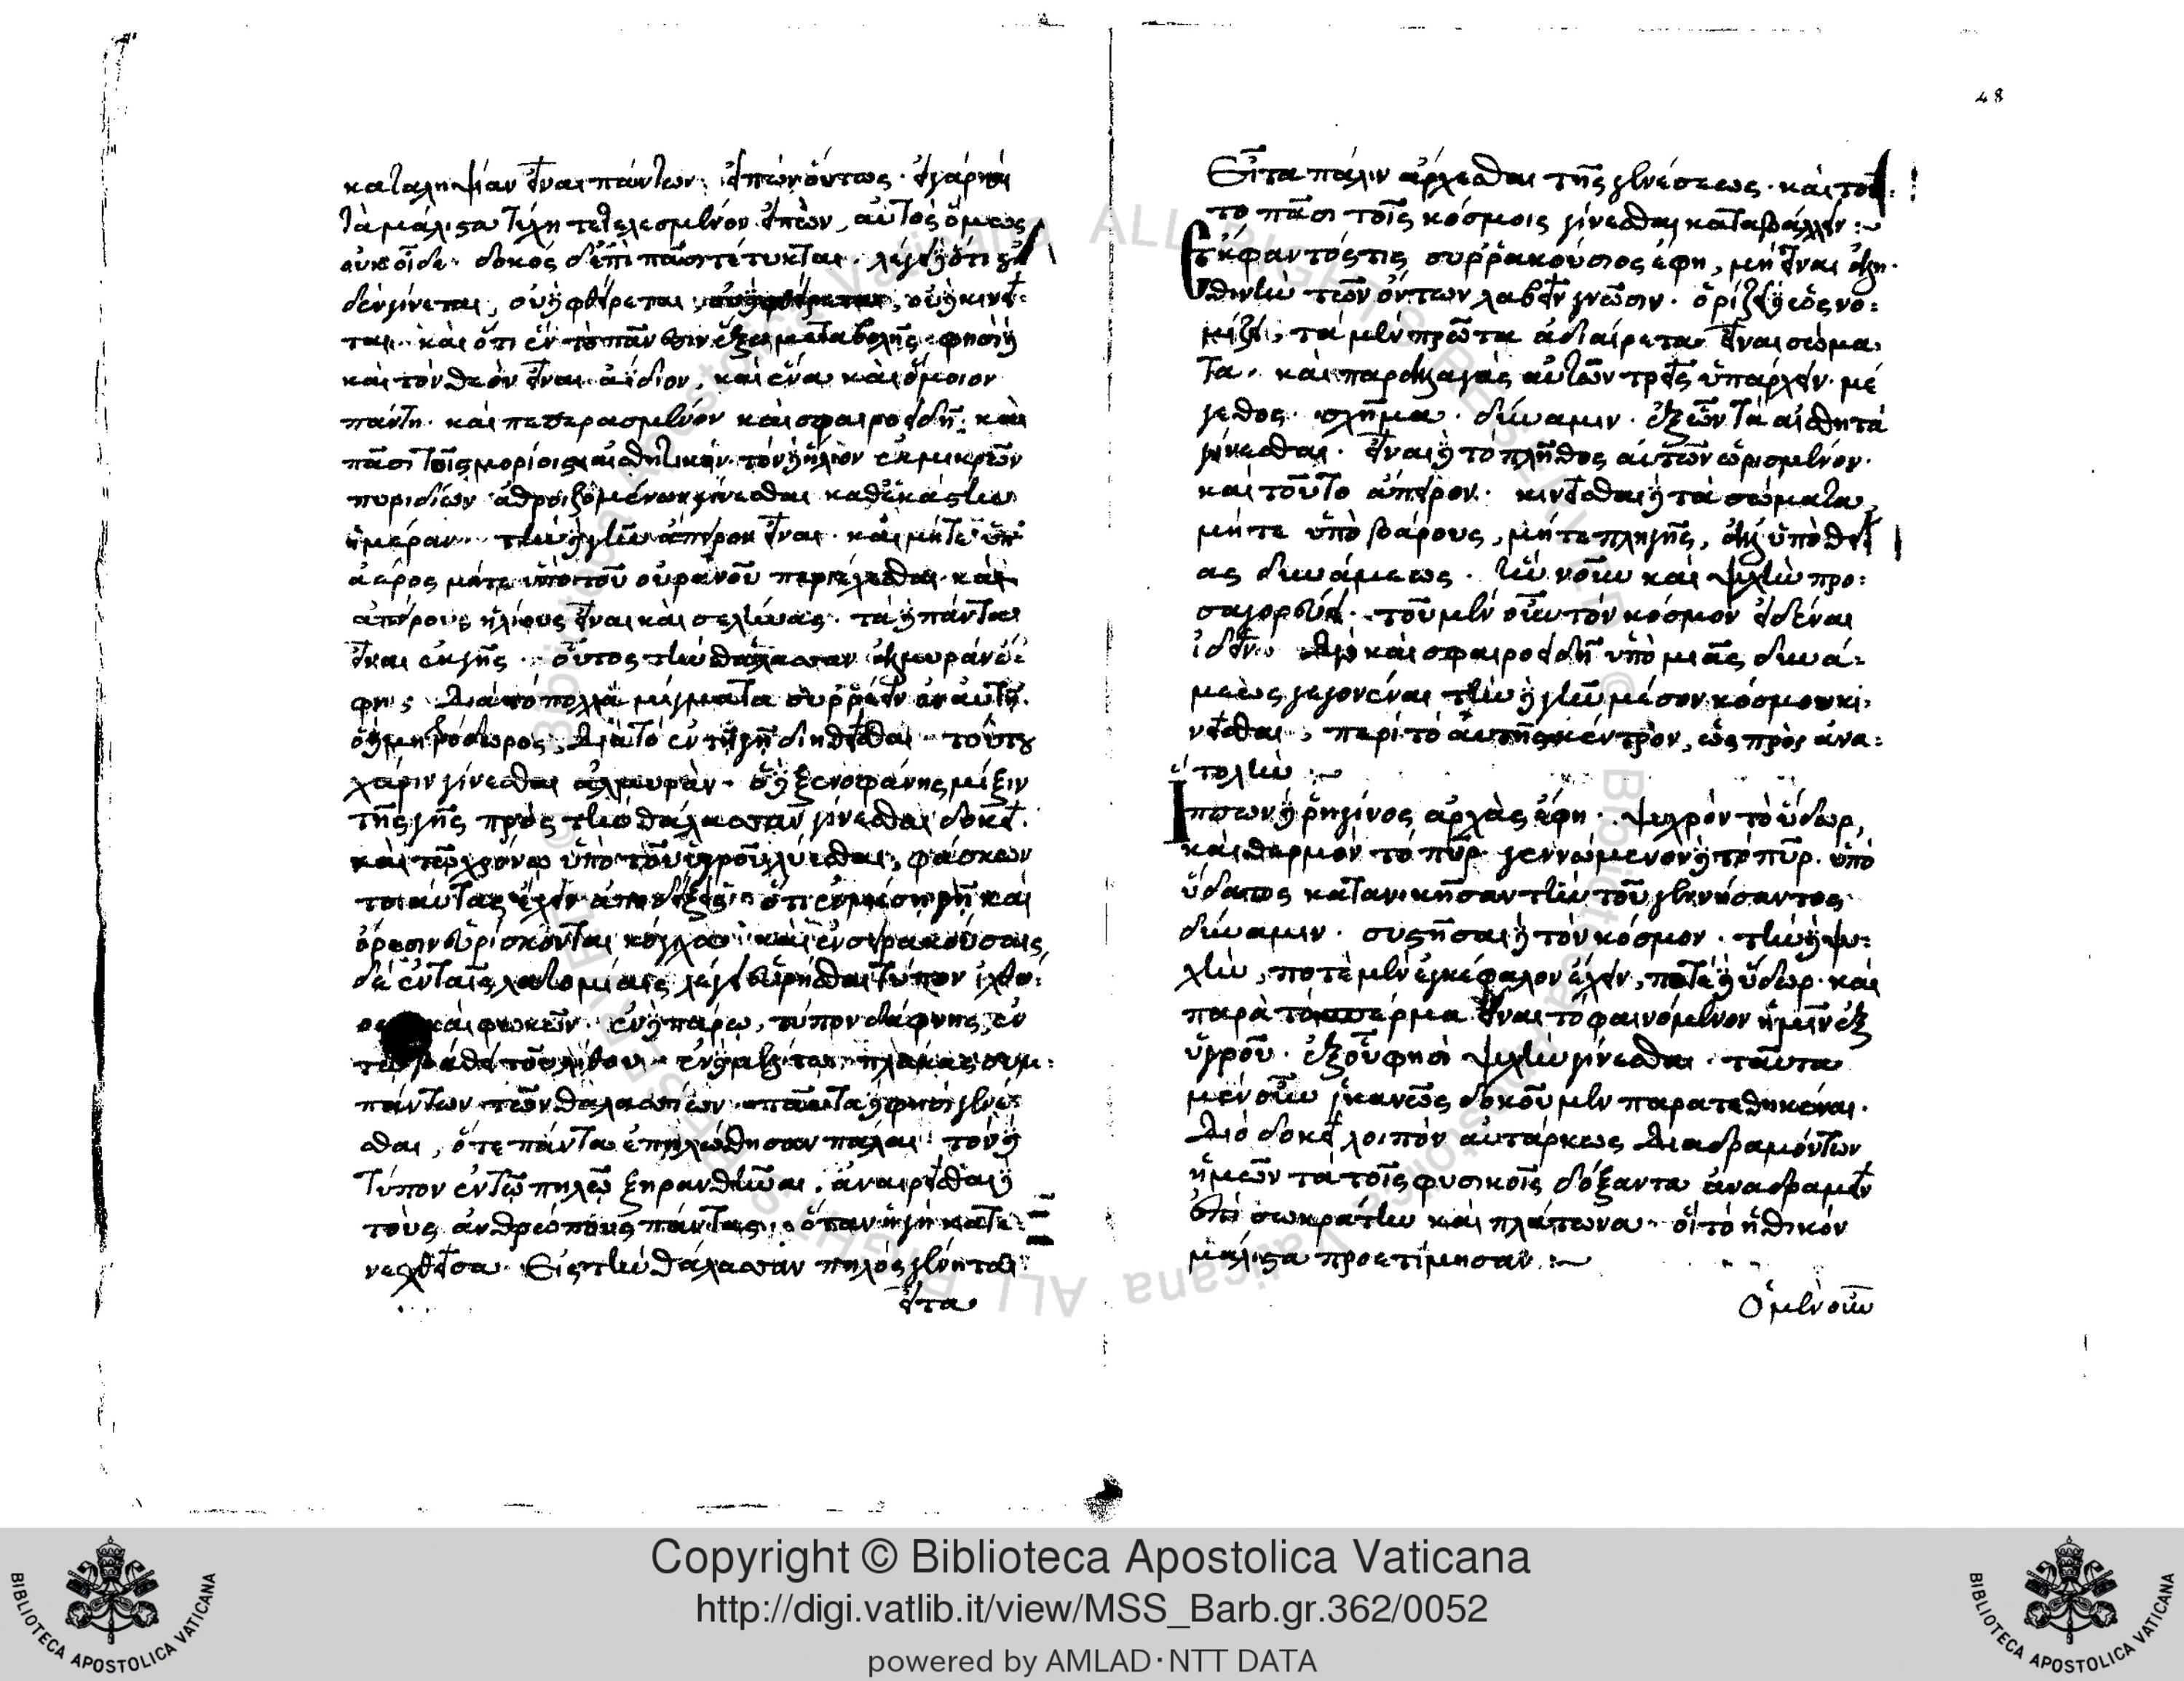 καταληψίαν εἶναι πάντων, εἰπὼν οὕτως. εἰ γὰρ καὶ
τὰ μάλιστα τύχῃ τετελεσμένον εἰπὼν, αὐτὸς ὅμως
οὐκ οἶδε. δοκὸς δ' ἐπὶ πᾶσι τέτυκται. λέγει δὲ ὅτι οὐ
δὲν γίνεται, οὐδὲ φθείρεται, οὐδὲ κινεῖ:
ται. καὶ ὅτι ἓν τὸ πᾶν ἐστιν ἔξω μεταβολῆς. φησὶ δὲ
καὶ τὸν θεὸν εἶναι ἀΐδιον, καὶ ἕνα καὶ ὅμοιον
πάντῃ. καὶ πεπερασμένον καὶ σφαιροειδῆ. καὶ
πᾶσι τοῖς μορίοις αἰσθητικόν. τὸν δὲ ἥλιον ἐκ μικρῶν
πυριδίων ἀθροιζομένων γίνεσθαι καθ' ἑκάστην
ἡμέραν. τὴν δὲ γῆν ἄπειρον εἶναι. καὶ μήτε ὑπ'
ἀέρος μήτε ὑπὸ τοῦ οὐρανοῦ περιέχεσθαι. καὶ
ἀπείρους ἡλίους εἶναι καὶ σελήνας. τὰ δὲ πάντα
εἶναι ἐκ γῆς. οὗτος τὴν θάλασσαν ἁλμυρὰν ἔ:
φη, διὰ τὸ πολλὰ μίγματα συρρέειν ἐν αὐτῇ.
ὁ δὲ μητρόδωρος, διὰ τὸ ἐν τῇ γῇ διηθεῖσθαι τούτου
χάριν γίνεσθαι ἁλμυράν. ὁ δὲ ξενοφάνης μίξιν
τῆς γῆς πρὸς τὴν θάλασσαν γίνεσθαι δοκεῖ.
καὶ τῷ χρόνῳ ὑπὸ τοῦ ὑγροῦ λύεσθαι, φάσκων
τοιαύτας ἔχειν ἀποδείξεις ὅτι ἐν μέσῃ γῇ καὶ
ὄρεσιν εὑρίσκονται κόγχαι. καὶ ἐν συρακούσαις
δὲ ἐν ταῖς λατομίαις λέγει εὑρῆσθαι τύπον ἰχθύ:
καὶ φωκῶν. ἐν δὲ πάρῳ, τύπον δάφνης ἐν
τῷ βάθει τοῦ λίθου. ἐν δὲ μελίτῃ πλάκας συμ:
πάντων τῶν θαλασσίων. ταῦτα δὲ φησὶ γενέ
σθαι, ὅτε πάντα ἐπηλώθησαν πάλαι. τὸν δὲ
τύπον ἐν τῷ πηλῷ ξηρανθῆναι. ἀναιρεῖσθαι δὲ
τοὺς ἀνθρώπους πάντας, ὅταν ἡ γῆ κατε:
νεχθεῖσα εἰς τὴν θάλασσαν πηλὸς γένηται
εἶτα
48
Εἶτα πάλιν ἄρχεσθαι τῆς γενέσεως. καὶ τοῦ:
το πᾶσι τοῖς κόσμοις γίνεσθαι καταβάλλειν:~
Ἔκφαντός τις συρρακούσιος ἔφη, μὴ εἶναι ἀλη:
θινὴν τῶν ὄντων λαβεῖν γνῶσιν. ὁρίζει δὲ ὡς νο:
μίζει, τὰ μὲν πρῶτα ἀδιαίρετα εἶναι σώμα
τα. καὶ παραλλαγὰς αὐτῶν τρεῖς ὑπάρχειν. μέ
γεθος. σχῆμα. δύναμιν. ἐξ ὧν τὰ αἰσθητὰ
γίνεσθαι. εἶναι δὲ τὸ πλῆθος αὐτῶν ὡρισμένον.
καὶ τοῦτο ἄπειρον. κινεῖσθαι δὲ τὰ σώματα,
μήτε ὑπὸ βάρους, μήτε πληγῆς, ἀλλ' ὑπὸ θεί
ας δυνάμεως. ἣν νοῦν καὶ ψυχὴν προ:
σαγορεύει. τοῦ μὲν οὖν τὸν κόσμον εἰδέναι
ἰδεῖν. διὸ καὶ σφαιροειδῆ ὑπὸ μιᾶς δυνά:
μεως γεγονέναι τὴν δὲ γῆν μέσον κόσμου κι:
νεῖσθαι, περὶ τὸ αὐτῆς κέντρον, ὡς πρὸς ἀνα:
τολήν:~
Ἵππων δὲ ῥηγῖνος ἀρχὰς ἔφη. ψυχρὸν τὸ ὕδωρ,
καὶ θερμὸν τὸ πῦρ. γεννώμενον δὲ τὸ πῦρ ὑπὸ
ὕδατος κατανικῆσαν τὴν τοῦ γεννήσαντος
δύναμιν. συστῆσαι δὲ τὸν κόσμον. τὴν δὲ ψυ:
χὴν, ποτὲ μὲν ἐγκέφαλον ἔχειν, ποτὲ δὲ ὕδωρ. καὶ
παρὰ τὸ σπέρμα εἶναι τὸ φαινόμενον ἡμῖν ἐξ
ὑγροῦ. ἐξ οὗ φησι ψυχὴν γίνεσθαι. ταῦτα
μὲν οὖν ἱκανῶς δοκοῦμεν παρατεθηκέναι.
Διὸ δοκεῖ λοιπὸν αὐτάρκως διαδραμόντων
ἡμῶν τὰ τοῖς φυσικοῖς δόξαντα ἀναδραμεῖν
ἐπὶ σωκράτην καὶ πλάτωνα. οἳ τὸ ἠθικὸν
μάλιστα προετίμησαν:~
Ὁ μὲν οὖν
Copyright © Biblioteca Apostolica Vaticana
http://digi.vatlib.it/view/MSS_Barb.gr.362/0052
powered by AMLAD·NTT DATA
BIBLIOTECA APOSTOLICA VATICANA
BIBLIOTECA APOSTOLICA VATICANA